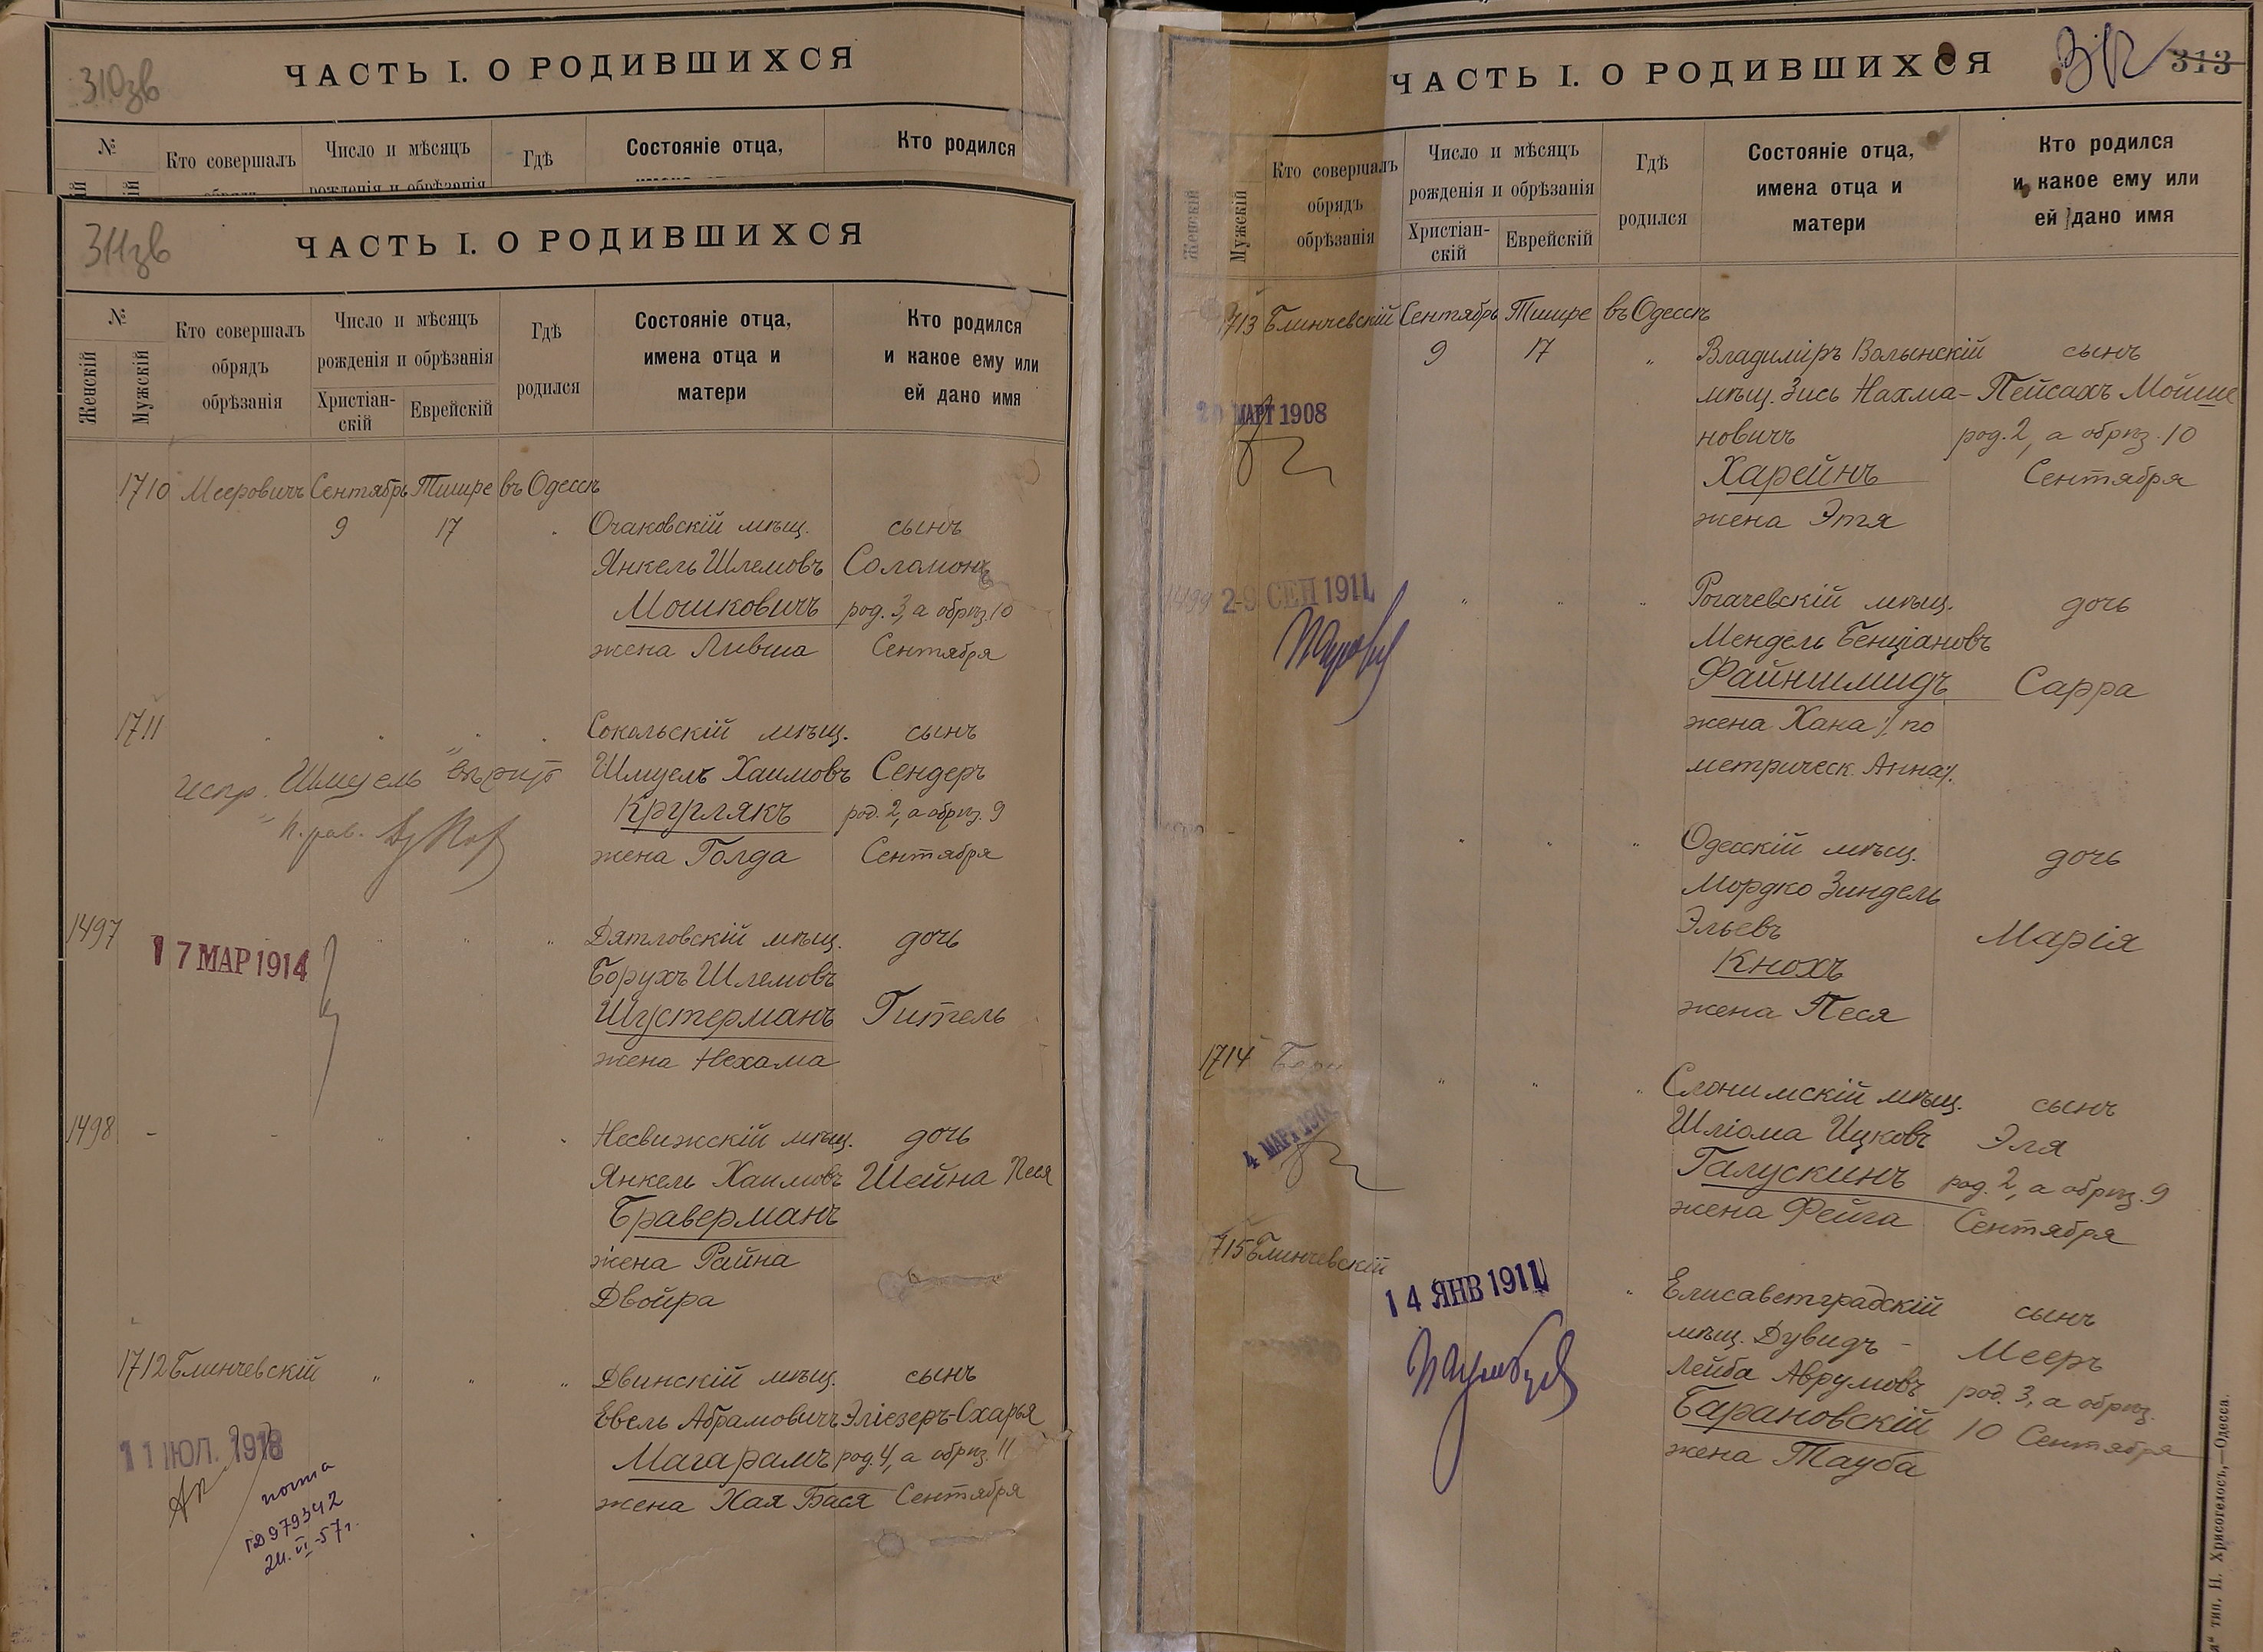 310зв
ЧАСТЬ I. О РОДИВШИХСЯ
№
Кто совершалъ
Число и мѣсяцъ
рожденія и обрѣзанія
Гдѣ
Состояніе отца,
Кто родился
311зв
ЧАСТЬ I. О РОДИВШИХСЯ
№
Женскій
Мужскій
Кто совершалъ
обрядъ
обрѣзанія
Число и мѣсяцъ
рожденія и обрѣзанія
Христіан-
скій
Еврейскій
Гдѣ
родился
Состояніе отца,
имена отца и
матери
Кто родился
и какое ему или
ей дано имя
1710 Мееровичъ Сентябрь Тишре въ Одессѣ
9 17 Очаковскій мѣщ. сынъ
Янкель Шлемовъ Соломонъ
Мошковичъ род. 3, а обрѣз. 10
жена Ливша Сентября
1711 Сокольскій мѣщ. сынъ
Шмуель Хаимовъ Сендеръ
Круглякъ род. 2, а обрѣз. 9
жена Голда Сентября
испр. "Шмуель" вѣрно
п. рав.
1497 Дятловскій мѣщ. дочь
17 МАР 1914
Борухъ Шлемовъ
Шустерманъ Гитель
жена Нехама
1498 Несвижскій мѣщ. дочь
Янкель Хаимовъ Шейна Песя
Браверманъ
жена Райна
Двойра
1712 Блинчевскій " " " Двинскій мѣщ. сынъ
Евель Абрамовичъ Эліезеръ-Схарья
Магарамъ род. 4, а обрѣз. 11
жена Хая Бася Сентября
11 ИЮЛ. 1918
почта
ГД 979342
24.VI-57 г.
ЧАСТЬ I. О РОДИВШИХСЯ
312
313
Женскій
Мужскій
Кто совершалъ
обрядъ
обрѣзанія
Число и мѣсяцъ
рожденія и обрѣзанія
Христіан-
скій
Еврейскій
Гдѣ
родился
Состояніе отца,
имена отца и
матери
Кто родился
и какое ему или
ей дано имя
1713 Блинчевскій Сентябрь Тишре въ Одессѣ
9 17 " Владиміръ Волынскій сынъ
мѣщ. Зись Нахма- Пейсахъ Мойше
новичъ род. 2, а обрѣз. 10
Харейнъ Сентября
жена Этя
МАРТ 1908
1499 Рогачевскій мѣщ. дочь
29 СЕН 1911
Мендель Бенціановъ
Файншмидъ Сарра
жена Хана /по
метрическ. Анна/.
Одесскій мѣщ. дочь
Мордко Зиндель
Эльевъ Марія
Кнохъ
жена Песя
1714 Слонимскій мѣщ. сынъ
Шліома Ицковъ Эля
Галускинъ род. 2, а обрѣз. 9
жена Фейга Сентября
4 МАРТ
1715 Блинчевскій
Елисаветградскій сынъ
мѣщ. Дувидъ- Мееръ
Лейба Аврумовъ род. 3, а обрѣз.
Барановскій 10 Сентября
жена Тауба
14 ЯНВ 1911
тип. Н. Хрисогелосъ,—Одесса.